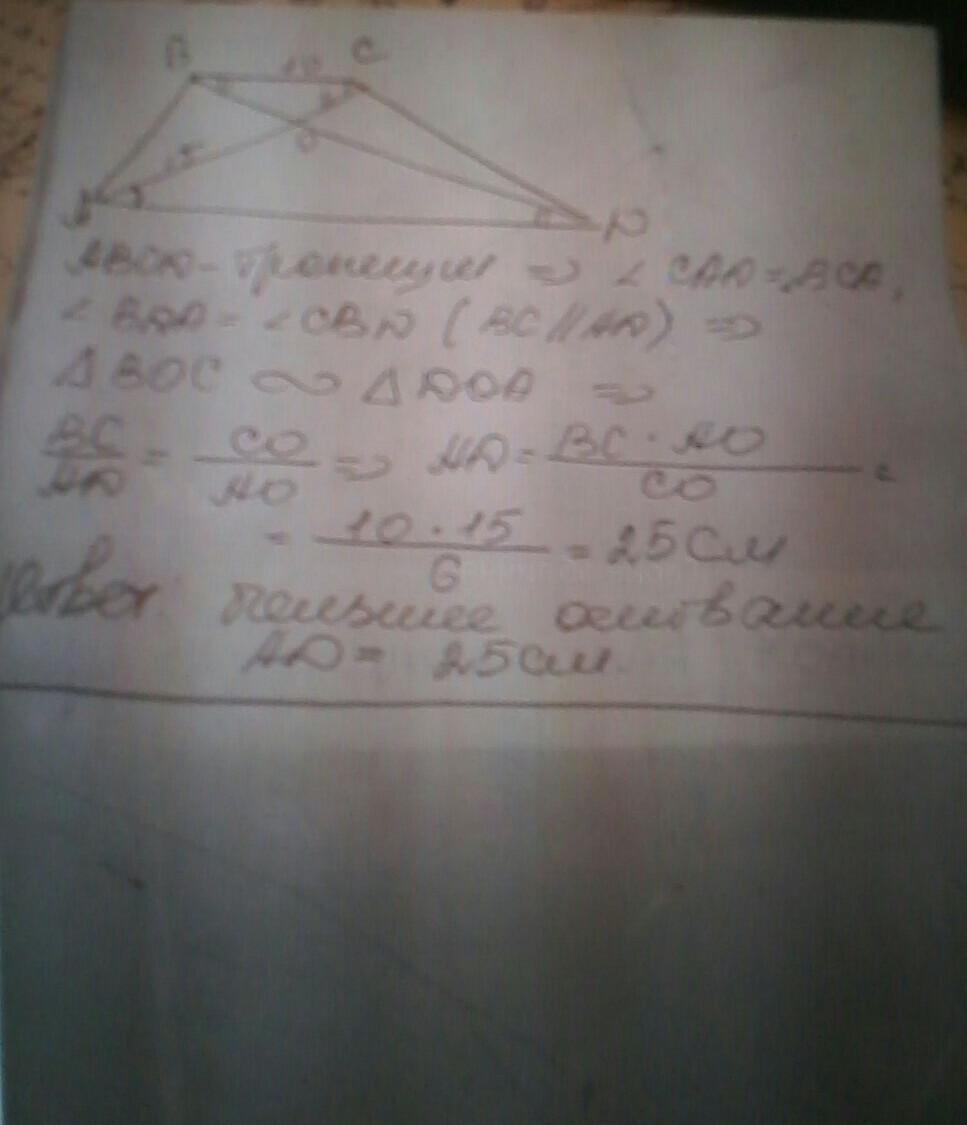 B 10 C
6
O
15
A D
ABCD - трапеция => ∠ CAD = BCA,
∠ BDA = ∠ CBD ( BC // AD ) =>
Δ BOC ∾ Δ DOA =>
BC/AD = CO/AO => AD = BC · AO/CO =
= 10 · 15/6 = 25 см
Ответ основание
AD = 25 см